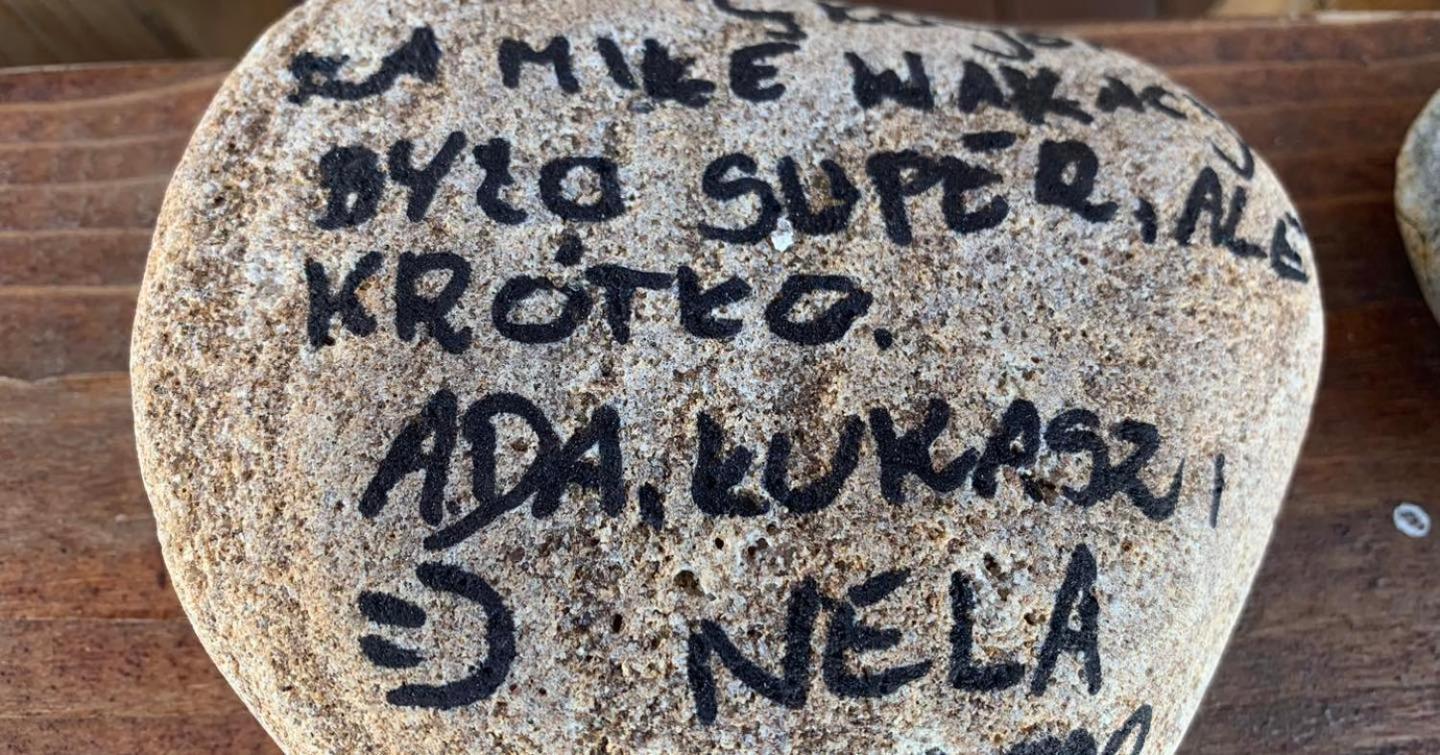 ZA MIŁE WAKACJE
BYŁO SUPER, ALE
KRÓTKO.
ADA, ŁUKASZ, I
=) NELA